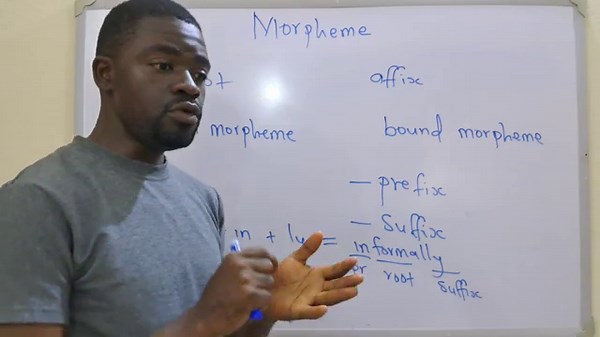 Morpheme
affix
morpheme bound morpheme
- prefix
- Suffix
in + ly = informally
root Suffix